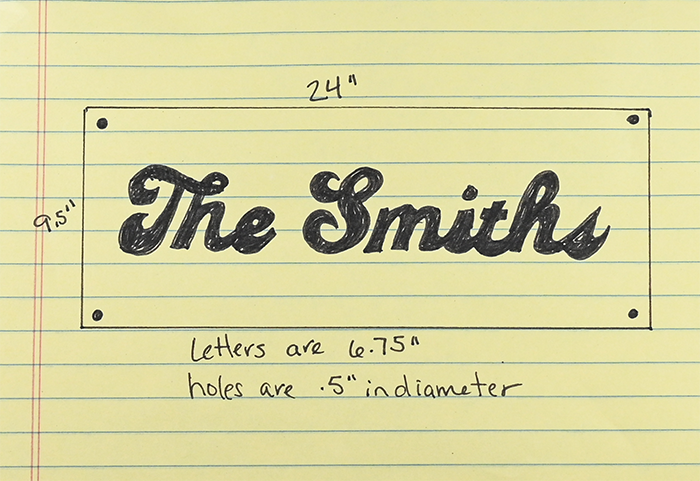 24"
9.5"
The Smiths
Letters are 6.75"
holes are .5" in diameter